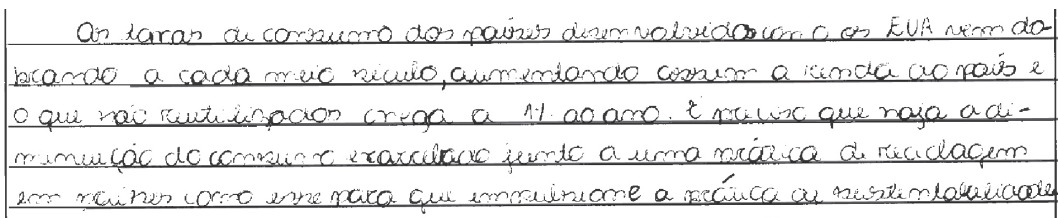 As taxas de consumo dos países desenvolvidos como os EUA vem do-
brando a cada meio século, aumentando assim a renda ao país e
o que não reutilizados chega a 1% ao ano. É preciso que haja a di-
minuição do consumo exarcebado junto a uma prática de reciclagem
em países como esse para que impulsione a prática de sustentabilidade